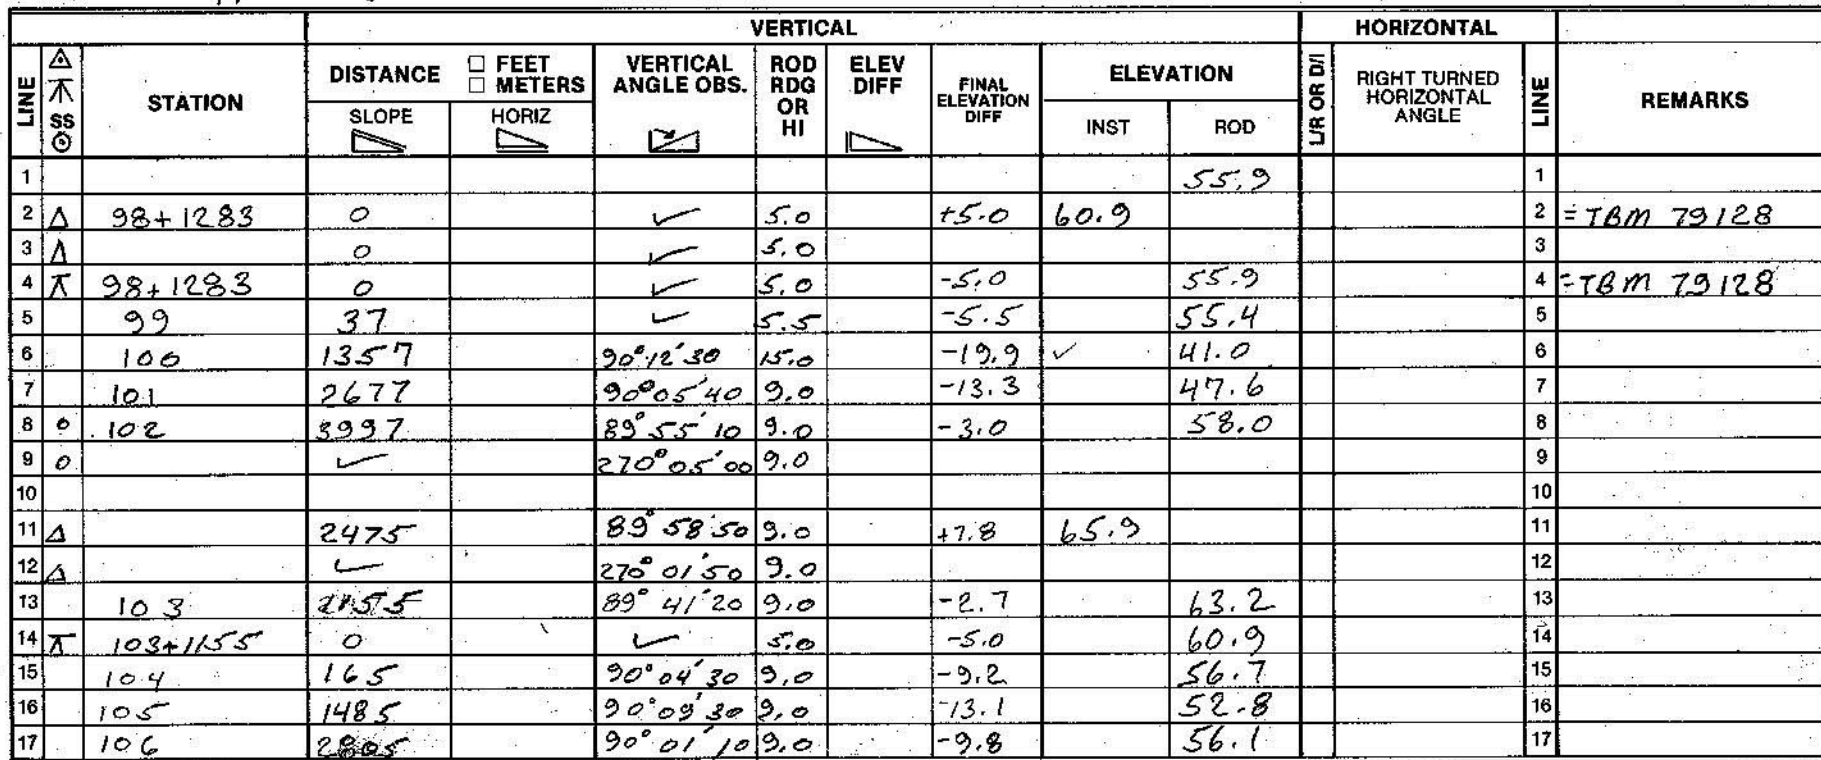 VERTICAL HORIZONTAL
LINE SS STATION DISTANCE □ FEET □ METERS SLOPE HORIZ VERTICAL ANGLE OBS. ROD RDG OR HI ELEV DIFF FINAL ELEVATION DIFF ELEVATION INST ROD L/R OR D/I RIGHT TURNED HORIZONTAL ANGLE LINE REMARKS
1 55.9 1
2 Δ 98+1283 0 ✓ 5.0 +5.0 60.9 2 = TBM 79128
3 Δ 0 ✓ 5.0 3
4 ⊼ 98+1283 0 ✓ 5.0 -5.0 55.9 4 = TBM 79128
5 99 37 ✓ 5.5 -5.5 55.4 5
6 100 1357 90°12'30 15.0 -19.9 ✓ 41.0 6
7 101 2677 90°05'40 9.0 -13.3 47.6 7
8 o 102 3997 89°55'10 9.0 -3.0 58.0 8
9 o ✓ 270°05'00 9.0 9
10 10
11 Δ 2475 89°58'50 9.0 +7.8 65.9 11
12 Δ ✓ 270°01'50 9.0 12
13 103 89°41'20 9.0 -2.7 63.2 13
14 ⊼ 103+1155 0 ✓ 5.0 -5.0 60.9 14
15 104 165 90°04'30 9.0 -9.2 56.7 15
16 105 1485 90°09'30 9.0 -13.1 52.8 16
17 106 2805 90°01'10 9.0 -9.8 56.1 17